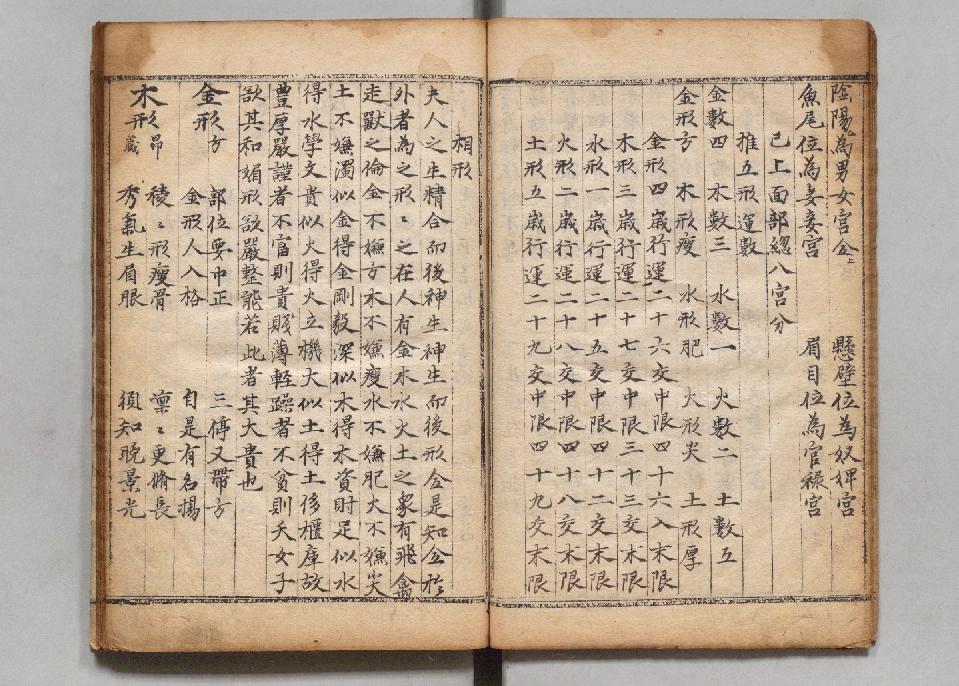 陰陽為男女宮 懸壁位為奴婢宮
魚尾位為妻妾宮 眉目位為官祿宮
已上面部總八宮分
推五形運數
金數四 木數三 水數一 火數二 土數五
金形方 木形瘦 水形肥 火形尖 土形厚
金形四歲行運二十六交中限四十六入末限
木形三歲行運二十七交中限三十三交末限
水形一歲行運二十五交中限四十二交末限
火形二歲行運二十八交中限四十八交末限
土形五歲行運二十九交中限四十九交末限
相形
夫人之生精合而後神生神生而後形全是知全於
外者為之形〻之在人有金木水火土之象有飛禽
走獸之倫金不嫌方木不嫌瘦水不嫌肥火不嫌尖
土不嫌濁似金得金剛毅深似木得木資財足似水
得水學文貴似火得火立機大似土得土多櫃庫故
豊厚嚴謹者不富則貴賤薄輕躁者不貧則夭女子
欲其和媚形欲嚴整能若此者其大貴也
金形方 部位要中正 三停又帶方
金形人入格 自是有名揚
木形昂 稜〻形瘦骨 凜〻更脩長
形藏 秀氣生眉眼 須知晚景光